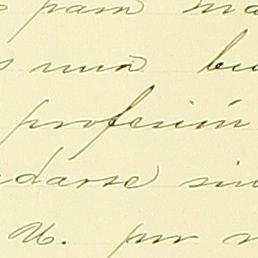 para
una bu
profesion
darse sin
M. por